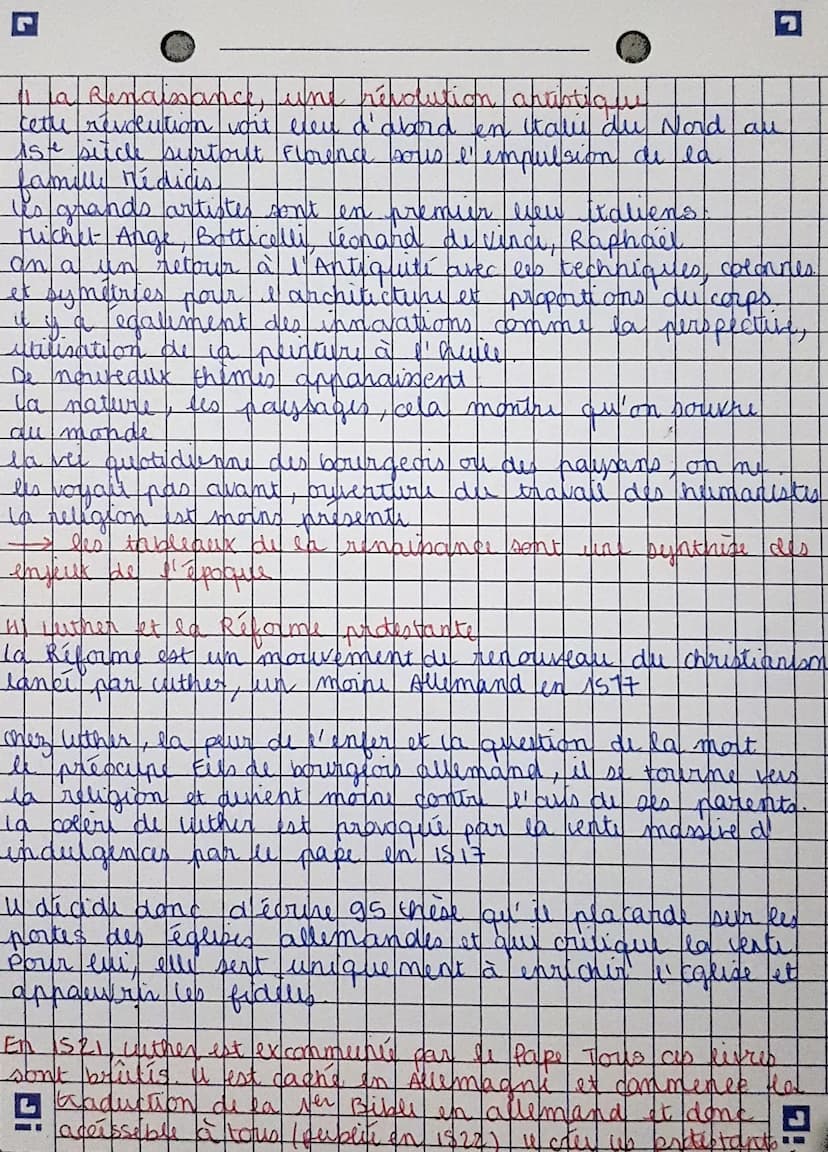 1) La Renaissance, une révolution artistique
Cette révolution voit lieu d'abord en Italie du Nord au
15e siècle surtout Florence sous l'impulsion de la
famille Médicis
Les grands artistes sont en premier lieu Italiens.
Michel-Ange, Botticelli, Léonard de Vinci, Raphaël
On a un retour à l'Antiquité avec les techniques, colonnes
et symétries pour l'architecture et proportions du corps.
il y a également des innovations comme la perspective,
utilisation de la peinture à l'huile.
De nouveaux thèmes apparaissent
La nature, les paysages, cela montre qu'on s'ouvre
au monde
la vie quotidienne des bourgeois ou des paysans, on ne
les voyait pas avant, ouverture du travail des humanistes
La religion est moins présente
→ les tableaux de la renaissance sont une synthèse des
enjeux de l'époque
Luther et la Réforme protestante
La Réforme est un mouvement de renouveau du christianism
lancé par Luther, un moine Allemand en 1517
Chez Luther, la peur de l'enfer et la question de la mort
le préocupe Fils de bourgeois allemand, il se tourne vers
la religion et devient moine contre l'avis de ses parents.
La colère de Luther est provoquée par la vente massive d'
indulgences par le pape en 1517
Il décide donc d'écrire 95 thèse qu'il placarde sur les
portes des églises allemandes et qui critique la vente
Pour lui, elle sert uniquement à enrichir l'Eglise et
appauvrir les fidèles.
En 1521, Luther est excommunié par le Pape Tous ces livres
sont brûlés. Il est caché en Allemagne et commence la
traduction de la 1er Bible en allemand et donc
accéssible à tous (publié en 1522)